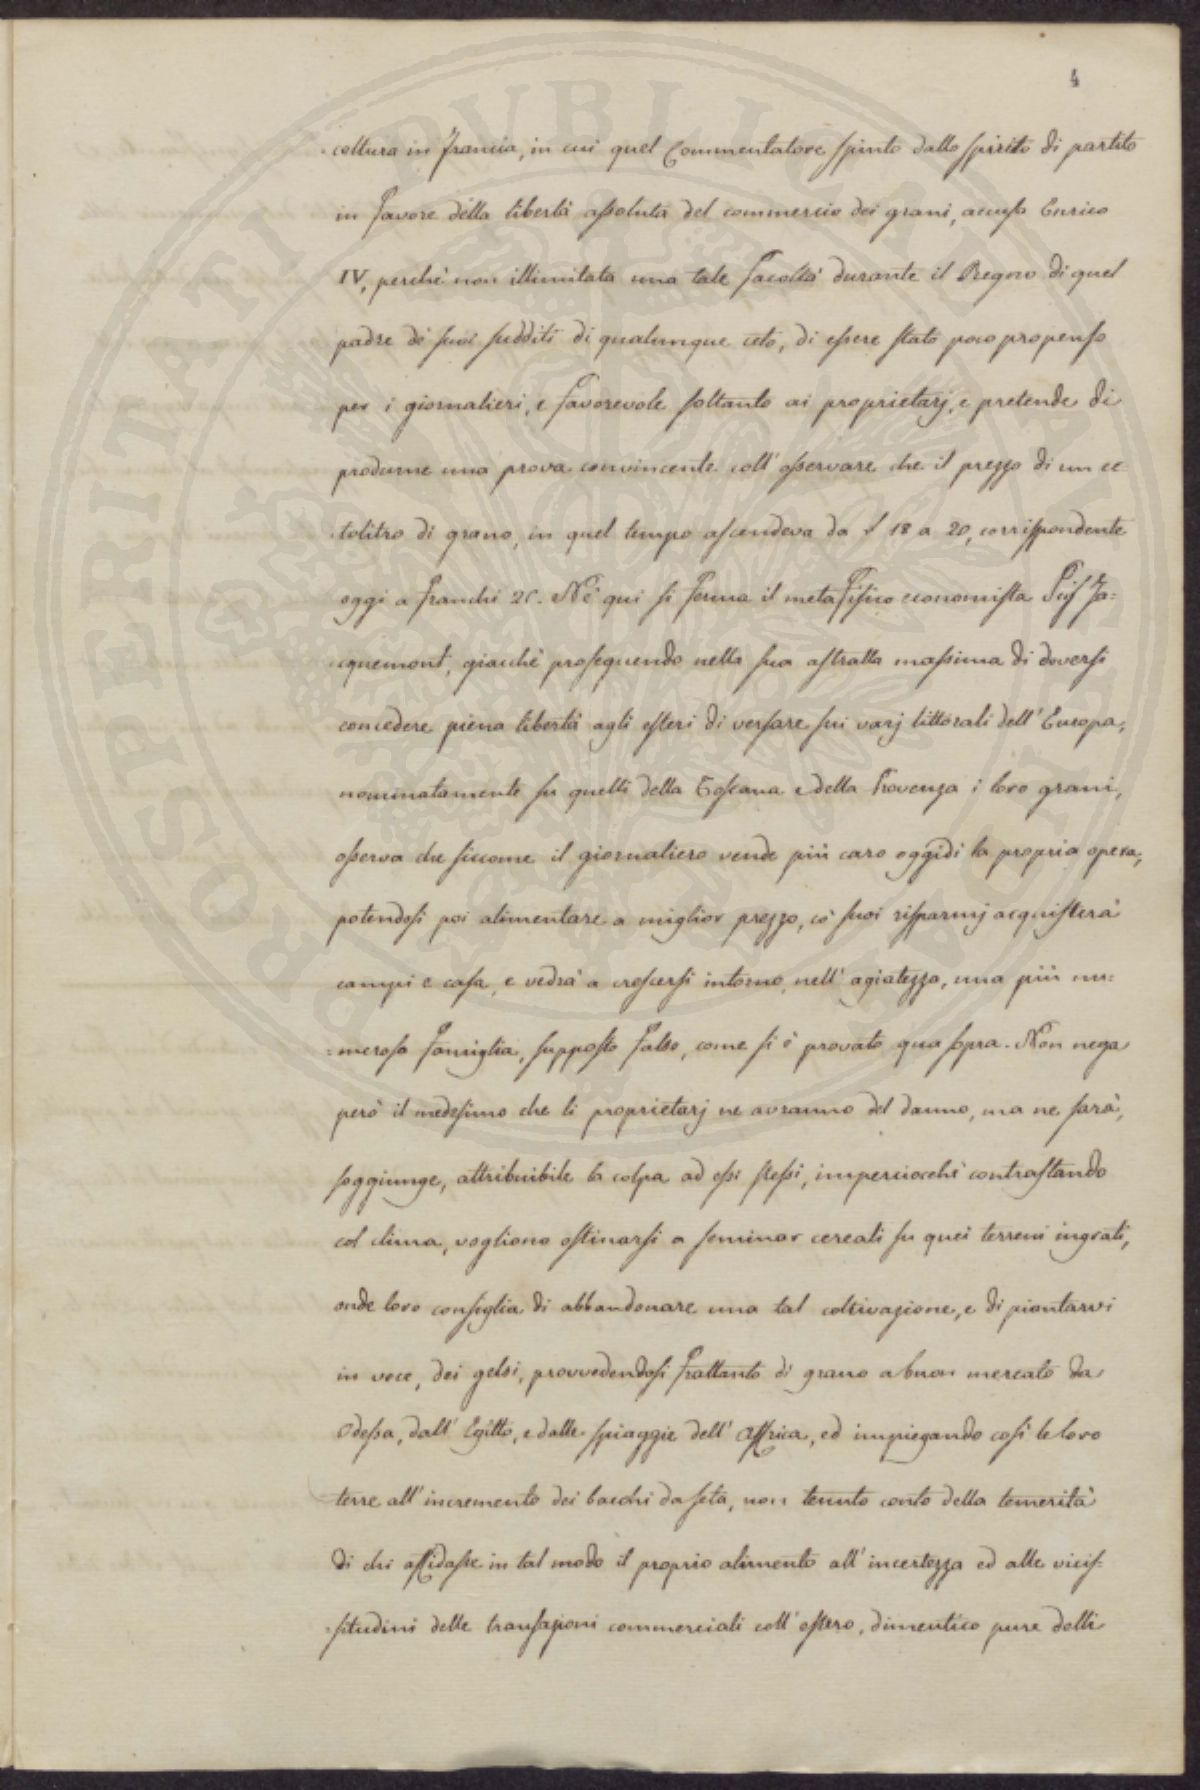 4
coltura in Francia, in cui quel Commentatore spinto dallo spirito di partito
in favore della libertà assoluta del commercio dei grani, accusa Enrico
IV, perchè non illimitata una tale facoltà durante il Regno di quel
padre de' suoi sudditi di qualunque ceto, di essere stato poco propenso
per i giornalieri, e favorevole soltanto ai proprietarj, e pretende di
produrne una prova convincente coll' osservare che il prezzo di un ec-
tolitro di grano, in quel tempo ascendeva da 18 a 20, corrispondente
oggi a franchi Nè qui si ferma il metafisico economista Ja=
quemont, giacchè proseguendo nella sua astratta massima di doversi
concedere piena libertà agli esteri di versare sui varj littorali dell' Europa,
nominatamente su quelli della Toscana e della Provenza i loro grani,
osserva che siccome il giornaliero vende più caro oggidì la propria opera,
potendosi poi alimentare a miglior prezzo, co' suoi risparmj acquisterà
campi e casa, e vedrà a crescersi intorno, nell' agiatezza, una più nu=
=merosa famiglia, supposto falso, come si è provato qua sopra. Non nega
però il medesimo che li proprietarj ne avranno del danno, ma ne sarà,
soggiunge, attribuibile la colpa ad essi stessi, imperciocchè contrastando
col clima, vogliono ostinarsi a seminar cereali su quei terreni ingrati,
onde loro consiglia di abbandonare una tal coltivazione, e di piantarvi
in vece, dei gelsi, provvedendosi frattanto di grano a buon mercato da
Odessa, dall' Egitto, e dalle spiaggie dell' Affrica, ed impiegando così le loro
terre all' incremento dei bacchi da seta, non tenuto conto della temerità
di chi affidasse in tal modo il proprio alimento all' incertezza ed alle vicis-
=situdini delle transazioni commerciali coll' estero, dimentico pure delli
PROSPERITATI PVBLICAE